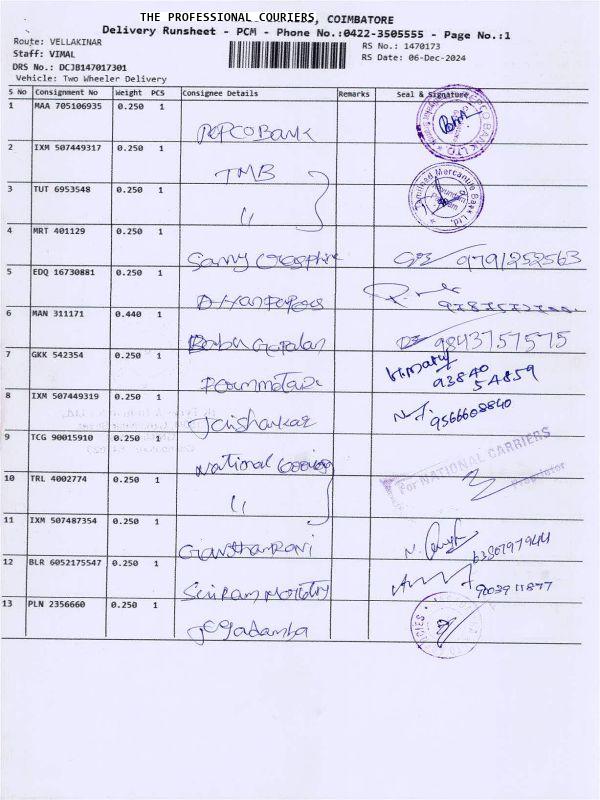 THE PROFESSIONAL COURIERS, COIMBATORE
Delivery Runsheet - PCM - Phone No.:0422-3505555 - Page No.:1
Route: VELLAKINAR
RS No.: 1470173
Staff: VIMAL
RS Date: 06-Dec-2024
DRS No.: DCJB147017301
Vehicle: Two Wheeler Delivery
S No Consignment No Weight PCS Consignee Details Remarks Seal & Signature
1 MAA 705106935 0.250 1
REPCO Bank
2 IXM 507449317 0.250 1
TMB
3 TUT 6953548 0.250 1
"
4 MRT 401129 0.250 1
9791252563
5 EDQ 16730881 0.250 1
6 MAN 311171 0.440 1
Babu Gopalan 9843757575
7 GKK 542354 0.250 1
93840
54859
8 IXM 507449319 0.250 1
Jaishankar 9566608840
9 TCG 90015910 0.250 1
National
For NATIONAL CARRIERS
Proprietor
10 TRL 4002774 0.250 1
"
11 IXM 507487354 0.250 1
12 BLR 6052175547 0.250 1
Sriram
13 PLN 2356660 0.250 1
Jegadamba